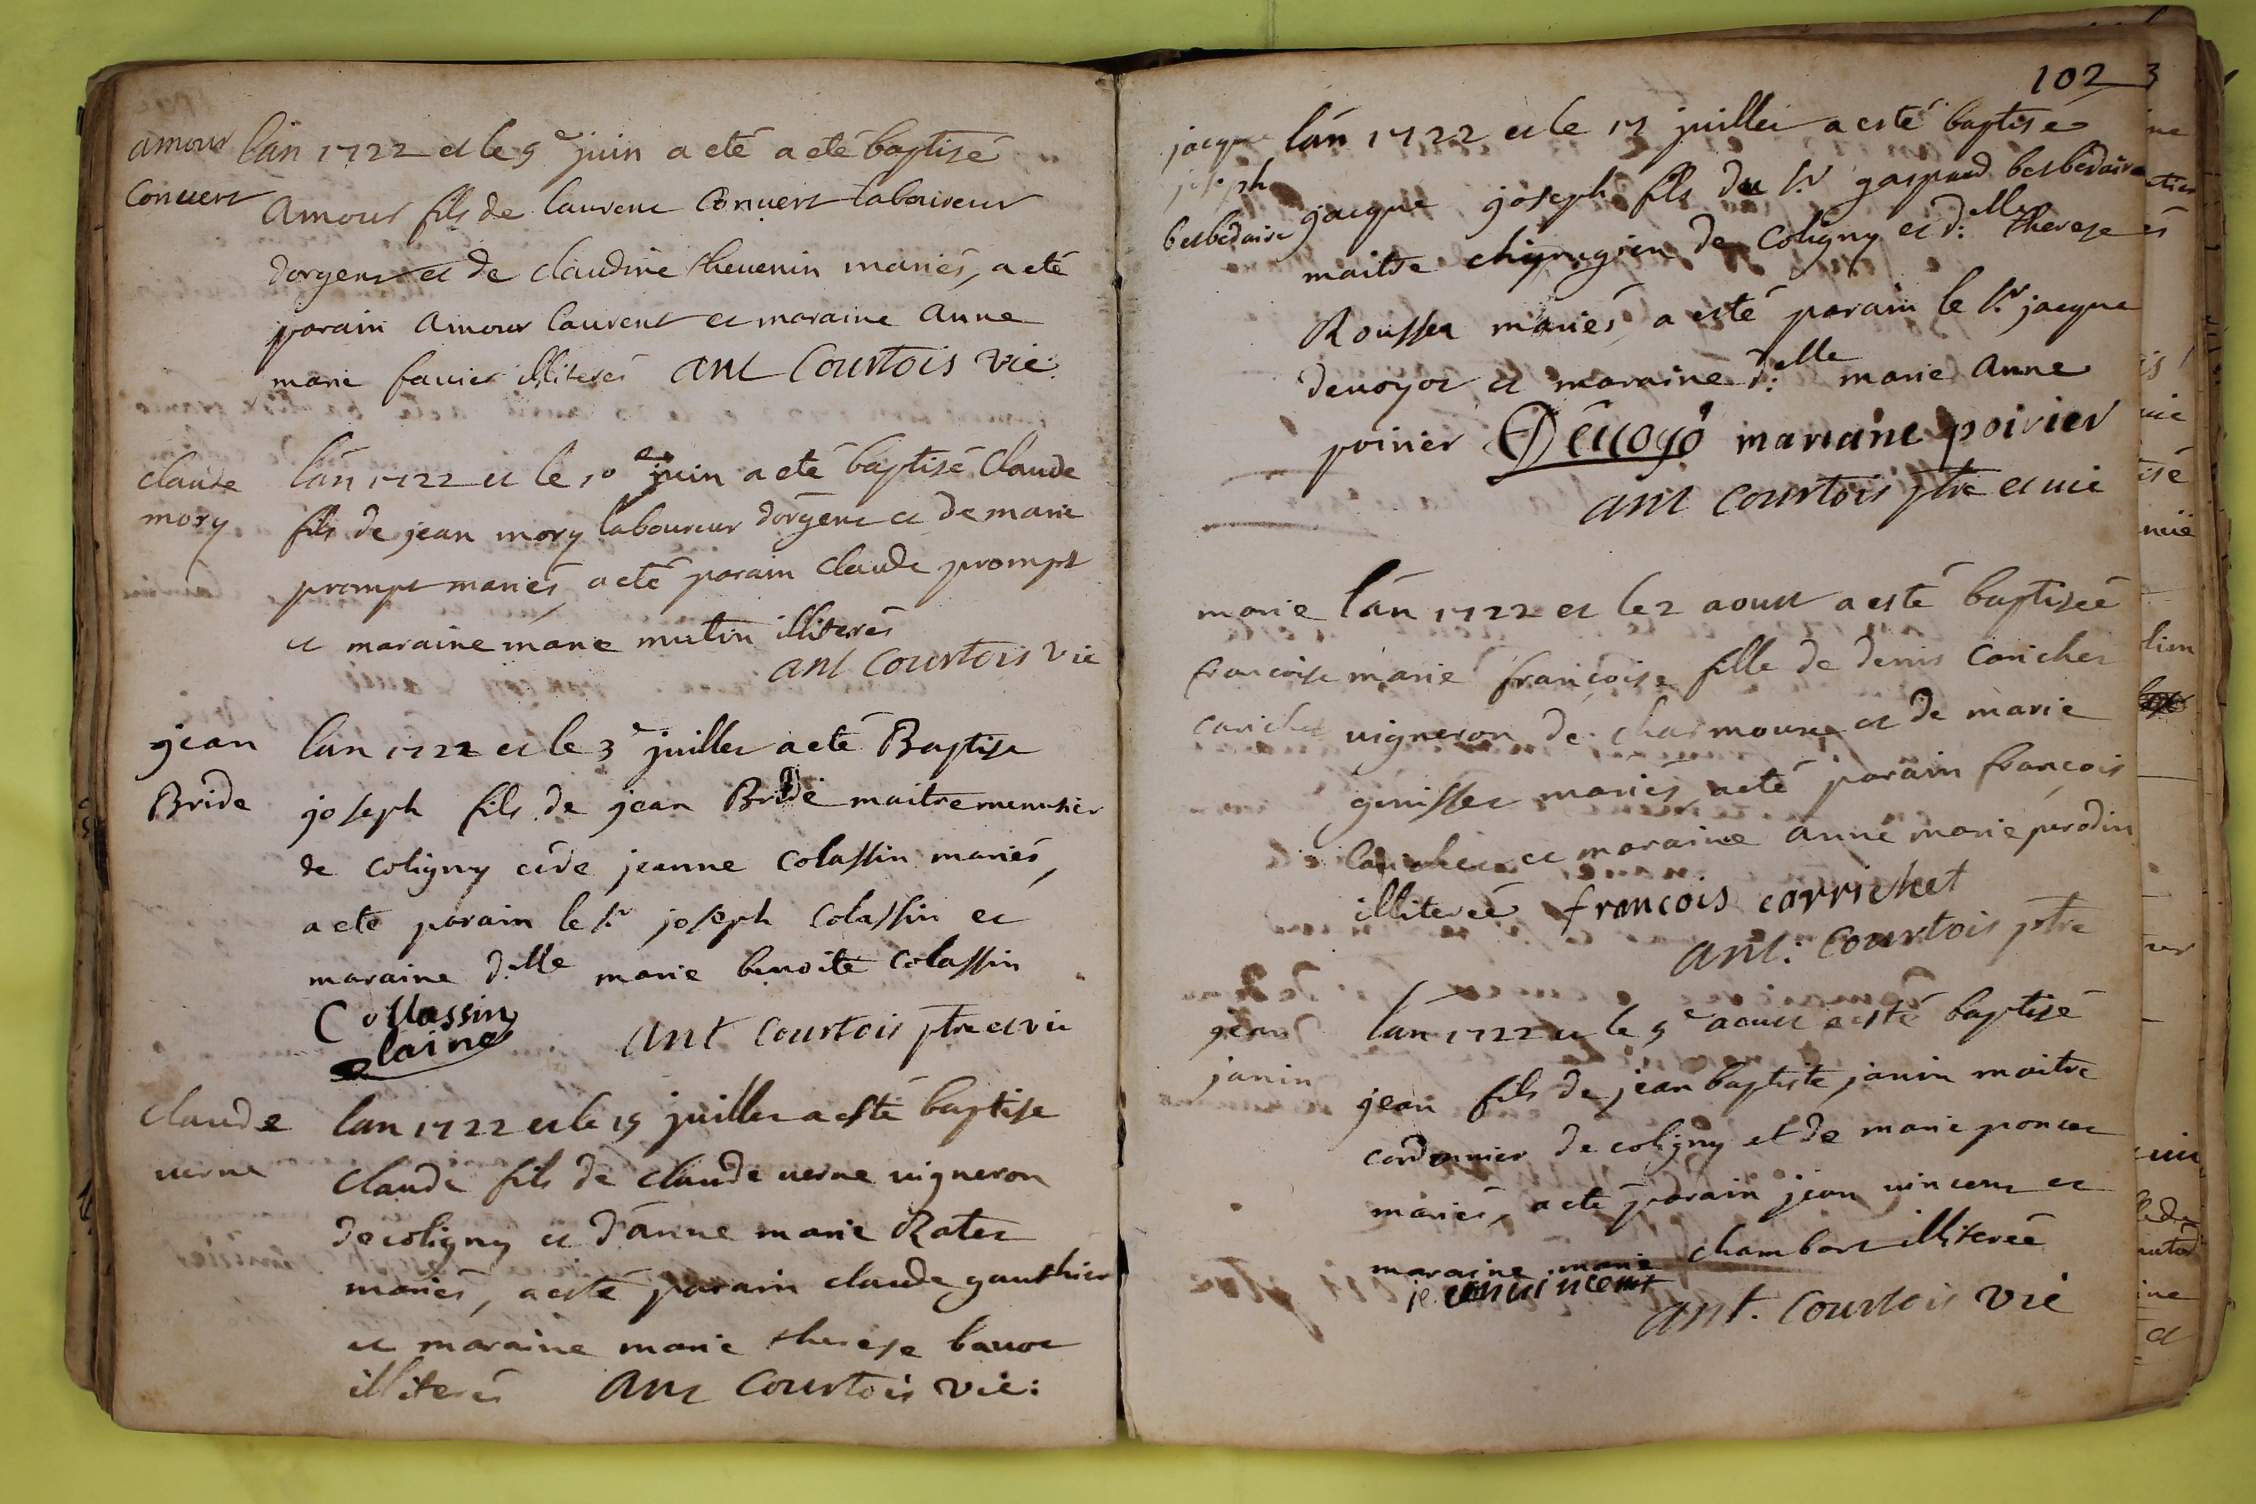 amour
Convert
lán 1722 et le 5e juin a eté a eté baptizé
amour fils de laurent Convert laboureur
dorgent et de claudine thevenin mariés, a eté
parain amour laurent et maraine anne
marie favier illiterés ant Courtois vic:
claude
mory
lán 1722 et le 10e juin a eté baptisé Claude
fils de jean mory laboureur dorgent et de marie
prompt mariés, a eté parain Claude prompt
et maraine marie mutin illiterés
ant Courtois vic
jean
Bride
lan 1722 et le 3e juillet a eté Baptise
joseph fils de jean Bride maitre menusier
de coligny et de jeanne Colassin mariés,
a eté parain le sr joseph Colassin et
maraine d.elle marie benoite Colassin
Collassin
laine
ant Courtois ptre et vic
claude
verne
lan 1722 et le 15 juillet a esté baptise
claude fils de claude verne vigneron
de coligny et d'anne marie Ratet
mariés, a esté parain claude gauthier
et maraine marie therese bavot
illiterés ant Courtois vic:
102
3
jacque
joseph
betbedaire
lán 1722 et le 17 juillet a esté baptisé
jacque joseph fils du sr gaspard betbedaire
maitre chyrurgien de Coligny et d:elle therese
Rousset mariés, a esté parain le sr jacque
devoyot et maraine d:elle marie anne
poirier Dévoyó mariane poirier
ant Courtois ptre et vic
marie
francoise
carichet
lán 1722 et le 2 aoust a esté baptizeé
marie françoise fille de denis Carichet
vigneron de charmoux et de marie
genisset mariés, a eté parain françois
Carichet et maraine anne marie perodin
illitereé francois carrichet
ant: Courtois ptre
jean
janin
lan 1722 et le 5e aoust a esté baptisé
jean fils de jean baptiste janin maitre
cordonnier de coligny et de marie poncet
mariés, a eté parain jean vincent et
maraine marie chambart illitereé
jean vincent
ant. Courtois vic